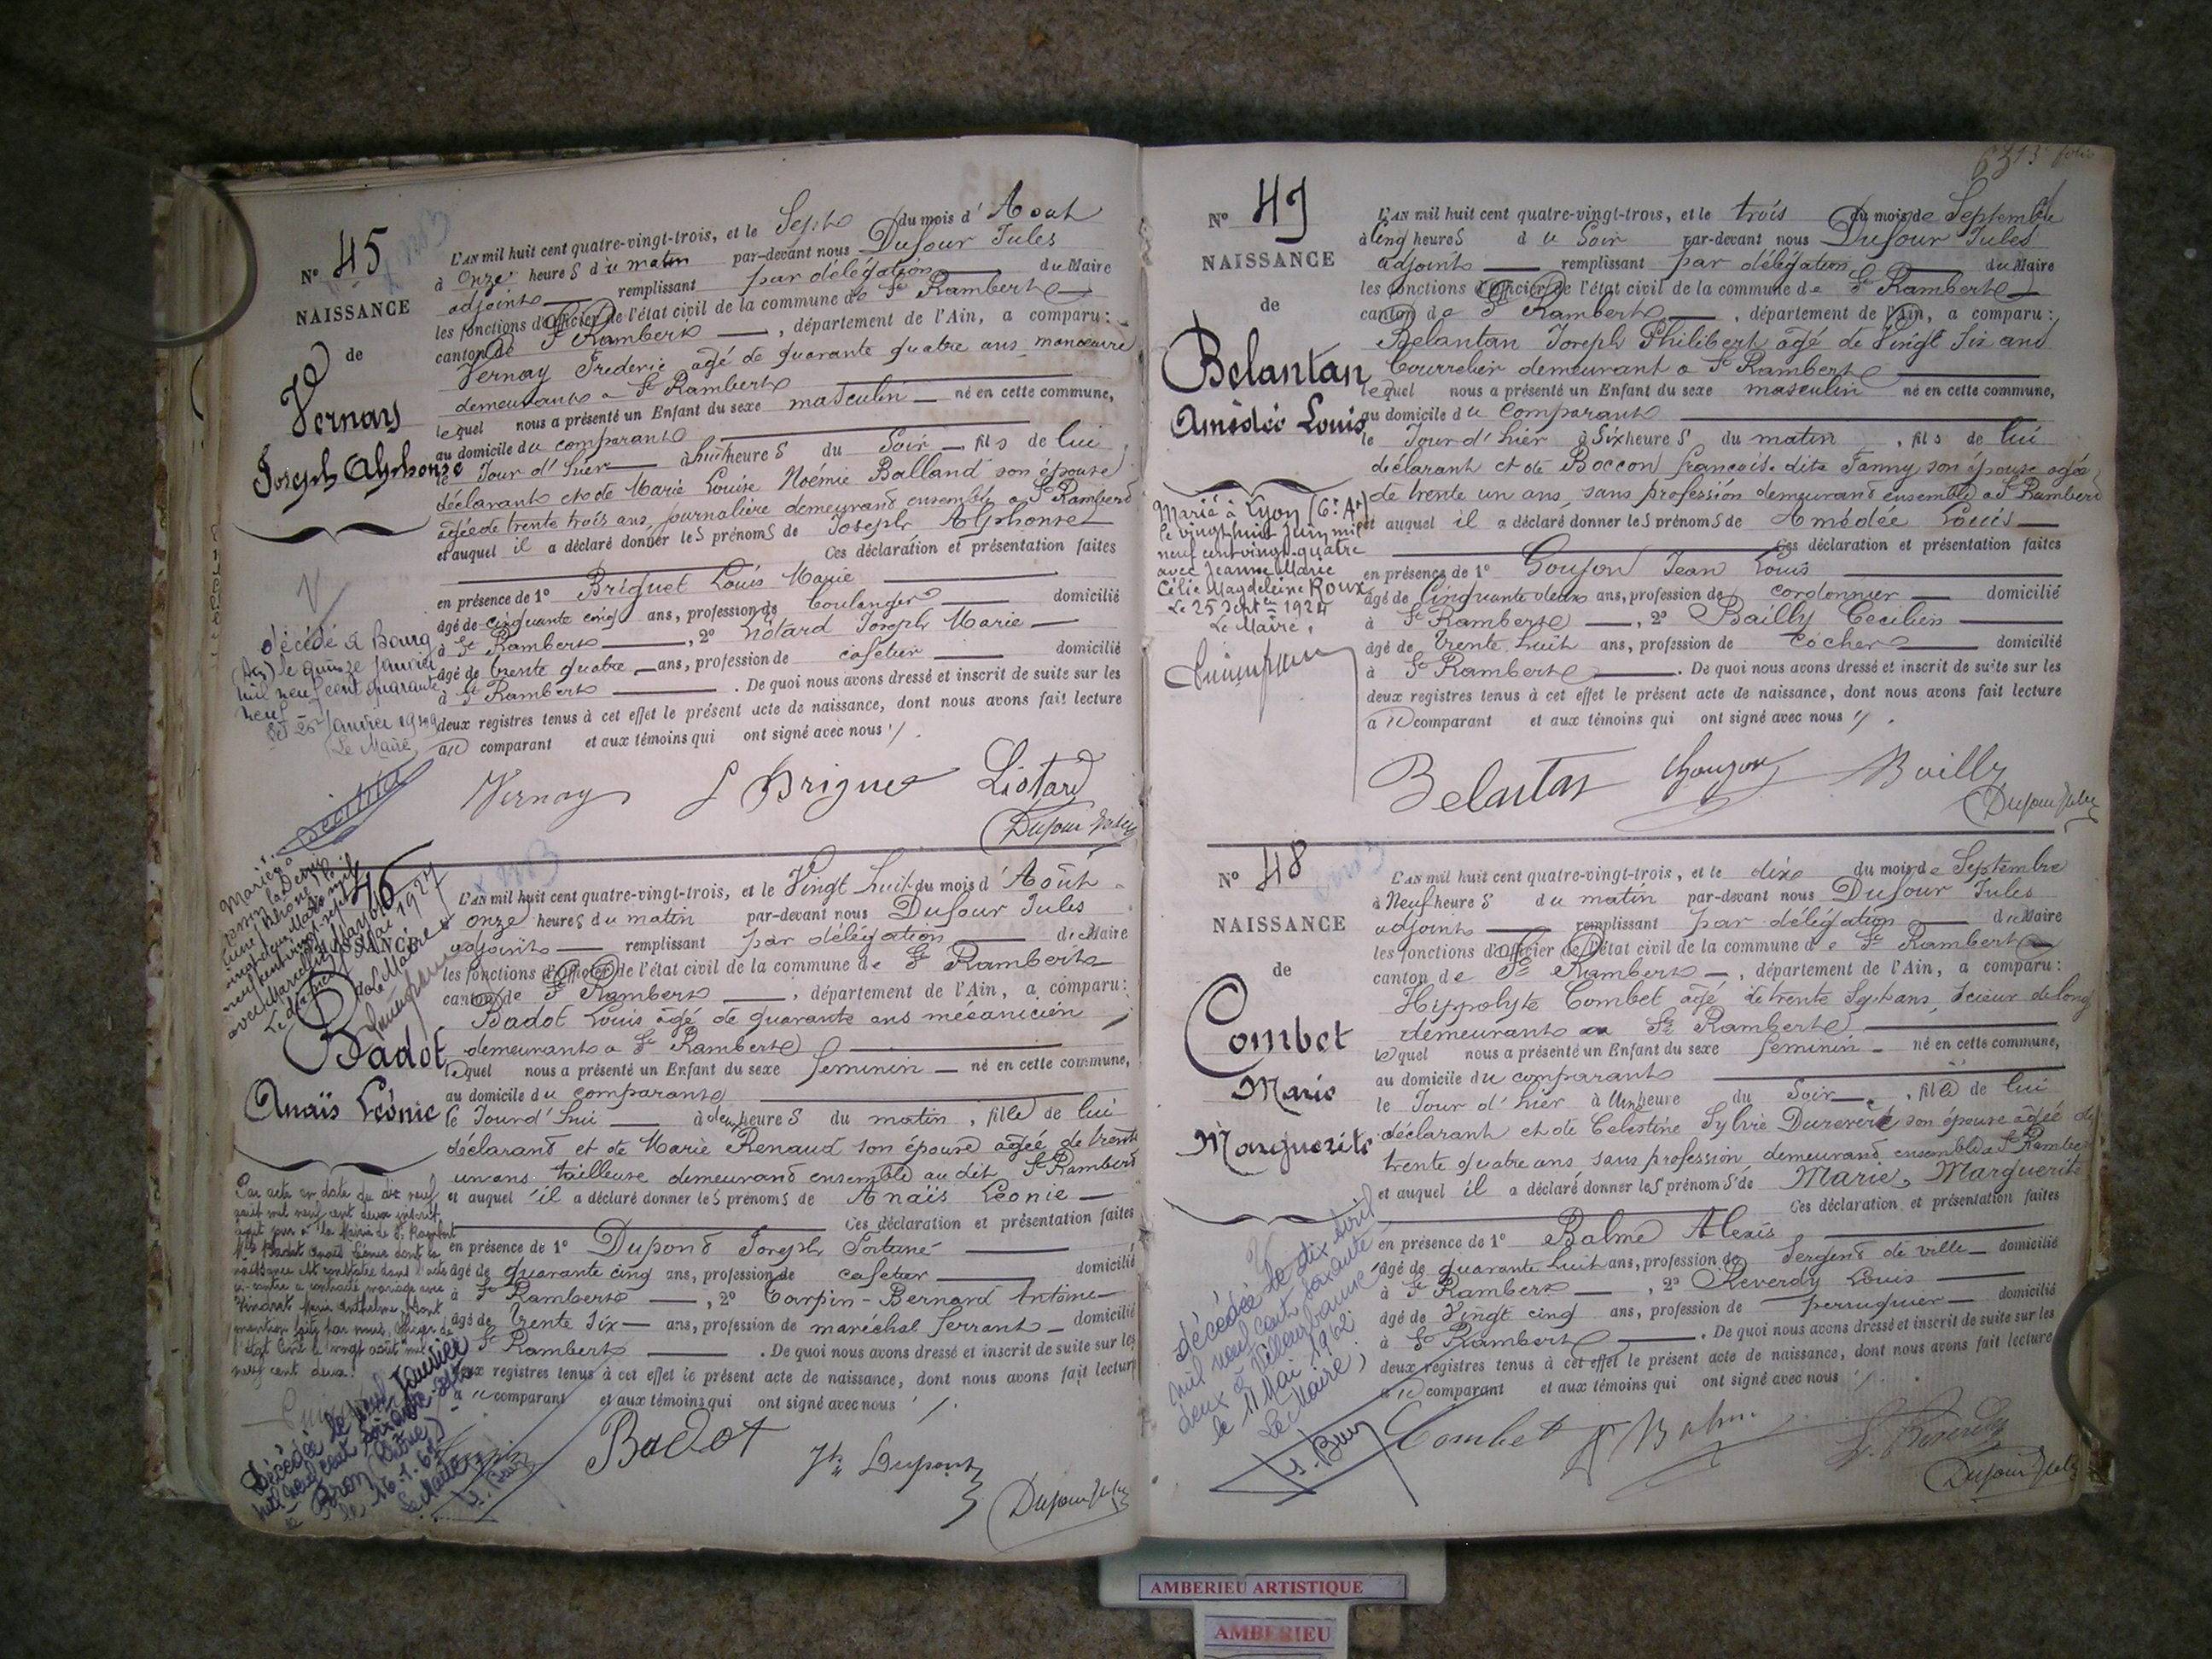 N° 45
NAISSANCE
de
Vernay
Joseph Alphonse
L'AN mil huit cent quatre-vingt-trois, et le Sept du mois d'Aout
à onze heures du matin par-devant nous Dufour Jules
adjoint remplissant par délégation du Maire
les fonctions d'Officier de l'état civil de la commune de St Rambert
canton de St Rambert, département de l'Ain, a comparu:
Vernay Frederic agé de quarante quatre ans manoeuvre
demeurant a St Rambert
lequel nous a présenté un Enfant du sexe masculin né en cette commune,
au domicile du comparant
le Jour d'hier à huit heures du Soir fils de lui
déclarant et de Marie Louise Noémie Balland son épouse
agée de trente trois ans, journalière demeurant ensemble a St Rambert
et auquel il a déclaré donner les prénoms de Joseph Alphonse
Ces déclaration et présentation faites
en présence de 1° Briguet Louis Marie
âgé de cinquante cinq ans, profession de boulanger domicilié
à St Rambert, 2° Liotard Joseph Marie
âgé de trente quatre ans, profession de cafetier domicilié
à St Rambert. De quoi nous avons dressé et inscrit de suite sur les
deux registres tenus à cet effet le présent acte de naissance, dont nous avons fait lecture
au comparant et aux témoins qui ont signé avec nous
décédé à Bourg
(Ain) le quinze janvier
mil neuf cent quarante
neuf
Janvier 1949
Le Maire
Vernay L Briguet Liotard
Dufour Jules
46
NAISSANCE
de
Badot
Anaïs Léonie
L'AN mil huit cent quatre-vingt-trois, et le Vingt huit du mois d'Août
onze heures du matin par-devant nous Dufour Jules
adjoint remplissant par délégation du Maire
les fonctions d'Officier de l'état civil de la commune de St Rambert
canton de St Rambert, département de l'Ain, a comparu:
Badot Louis âgé de quarante ans mécanicien
demeurant a St Rambert
lequel nous a présenté un Enfant du sexe feminin né en cette commune,
au domicile du comparant
le Jourd'hui à deux heures du matin, fille de lui
déclarant et de Marie Renaud son épouse agée de trente
un ans tailleuse demeurant ensemble au dit St Rambert
et auquel il a déclaré donner les prénoms de Anaïs Léonie
Ces déclaration et présentation faites
en présence de 1° Dupond Joseph Fortuné
âgé de quarante cinq ans, profession de cafetier domicilié
à St Rambert, 2° Carpin-Bernard Antoine
âgé de trente six ans, profession de maréchal ferrant domicilié
St Rambert. De quoi nous avons dressé et inscrit de suite sur les
deux registres tenus à cet effet le présent acte de naissance, dont nous avons fait lecture
comparant et aux témoins qui ont signé avec nous
Par acte en date du dix neuf
août mil neuf cent deux inscrit
à la Mairie de St Rambert
Badot Anaïs Léonie dont la
naissance est constatée dans l'acte
ci-contre a contracté mariage avec
Vindret Marie Anthelme. Dont
mention faite par nous, Officier de
l'état civil le vingt août mil
neuf cent deux.
Décédée le neuf Janvier
mil neuf cent soixante-sept
à Bron (Rhône)
le 16.1.67
Le Maire
Badot
Jh Dupont
Dufour Jules
N° 47
NAISSANCE
de
Belantan
Amédée Louis
L'AN mil huit cent quatre-vingt-trois, et le trois du mois de Septembre
à Cinq heures du Soir par-devant nous Dufour Jules
adjoint remplissant par délégation du Maire
les fonctions d'Officier de l'état civil de la commune de St Rambert
canton de St Rambert, département de l'Ain, a comparu:
Belantan Joseph Philibert âgé de Vingt Six ans
Bourrelier demeurant a St Rambert
lequel nous a présenté un Enfant du sexe masculin né en cette commune,
au domicile du comparant
le Jour d'hier à Six heures du matin, fils de lui
déclarant et de Boccon françoise dite Fanny son épouse agée
de trente un ans, sans profession demeurant ensemble a St Rambert
et auquel il a déclaré donner les prénoms de Amédée Louis
Ces déclaration et présentation faites
en présence de 1° Goujon Jean Louis
âgé de Cinquante deux ans, profession de cordonnier domicilié
à St Rambert, 2° Bailly Cecilien
âgé de trente huit ans, profession de cocher domicilié
à St Rambert. De quoi nous avons dressé et inscrit de suite sur les
deux registres tenus à cet effet le présent acte de naissance, dont nous avons fait lecture
au comparant et aux témoins qui ont signé avec nous
Marié à Lyon (6e Art)
le vingt huit Juin mil
neuf cent vingt-quatre
avec Jeanne Marie
Célie Magdeleine Roux
Le 25 Sept 1924
Le Maire,
Belantan Goujon Bailly
Dufour Jules
N° 48
NAISSANCE
de
Combet
Marie
Marguerite
L'AN mil huit cent quatre-vingt-trois, et le dix du mois de Septembre
à Neuf heures du matin par-devant nous Dufour Jules
adjoint remplissant par délégation du Maire
les fonctions d'Officier de l'état civil de la commune de St Rambert
canton de St Rambert, département de l'Ain, a comparu:
Hippolyte Combet agé de trente Sept ans, scieur de long
demeurant a St Rambert
lequel nous a présenté un Enfant du sexe feminin né en cette commune,
au domicile du comparant
le Jour d'hier à Une heure du Soir, fille de lui
déclarant et de Celestine Sylvie Dureveré son épouse agée de
trente quatre ans sans profession demeurant ensemble a St Rambert
et auquel il a déclaré donner les prénoms de Marie, Marguerite
Ces déclaration et présentation faites
en présence de 1° Balme Alexis
âgé de quarante huit ans, profession de Sergent de ville domicilié
à St Rambert, 2° Reverdy Louis
âgé de Vingt cinq ans, profession de perruquier domicilié
à St Rambert. De quoi nous avons dressé et inscrit de suite sur les
deux registres tenus à cet effet le présent acte de naissance, dont nous avons fait lecture
au comparant et aux témoins qui ont signé avec nous
Décédée le dix avril
mil neuf cent soixante
deux à Villeurbanne
le 11 Mai 1962
Le Maire,
Combet
Dufour Jules
AMBERIEU ARTISTIQUE
AMBERIEU